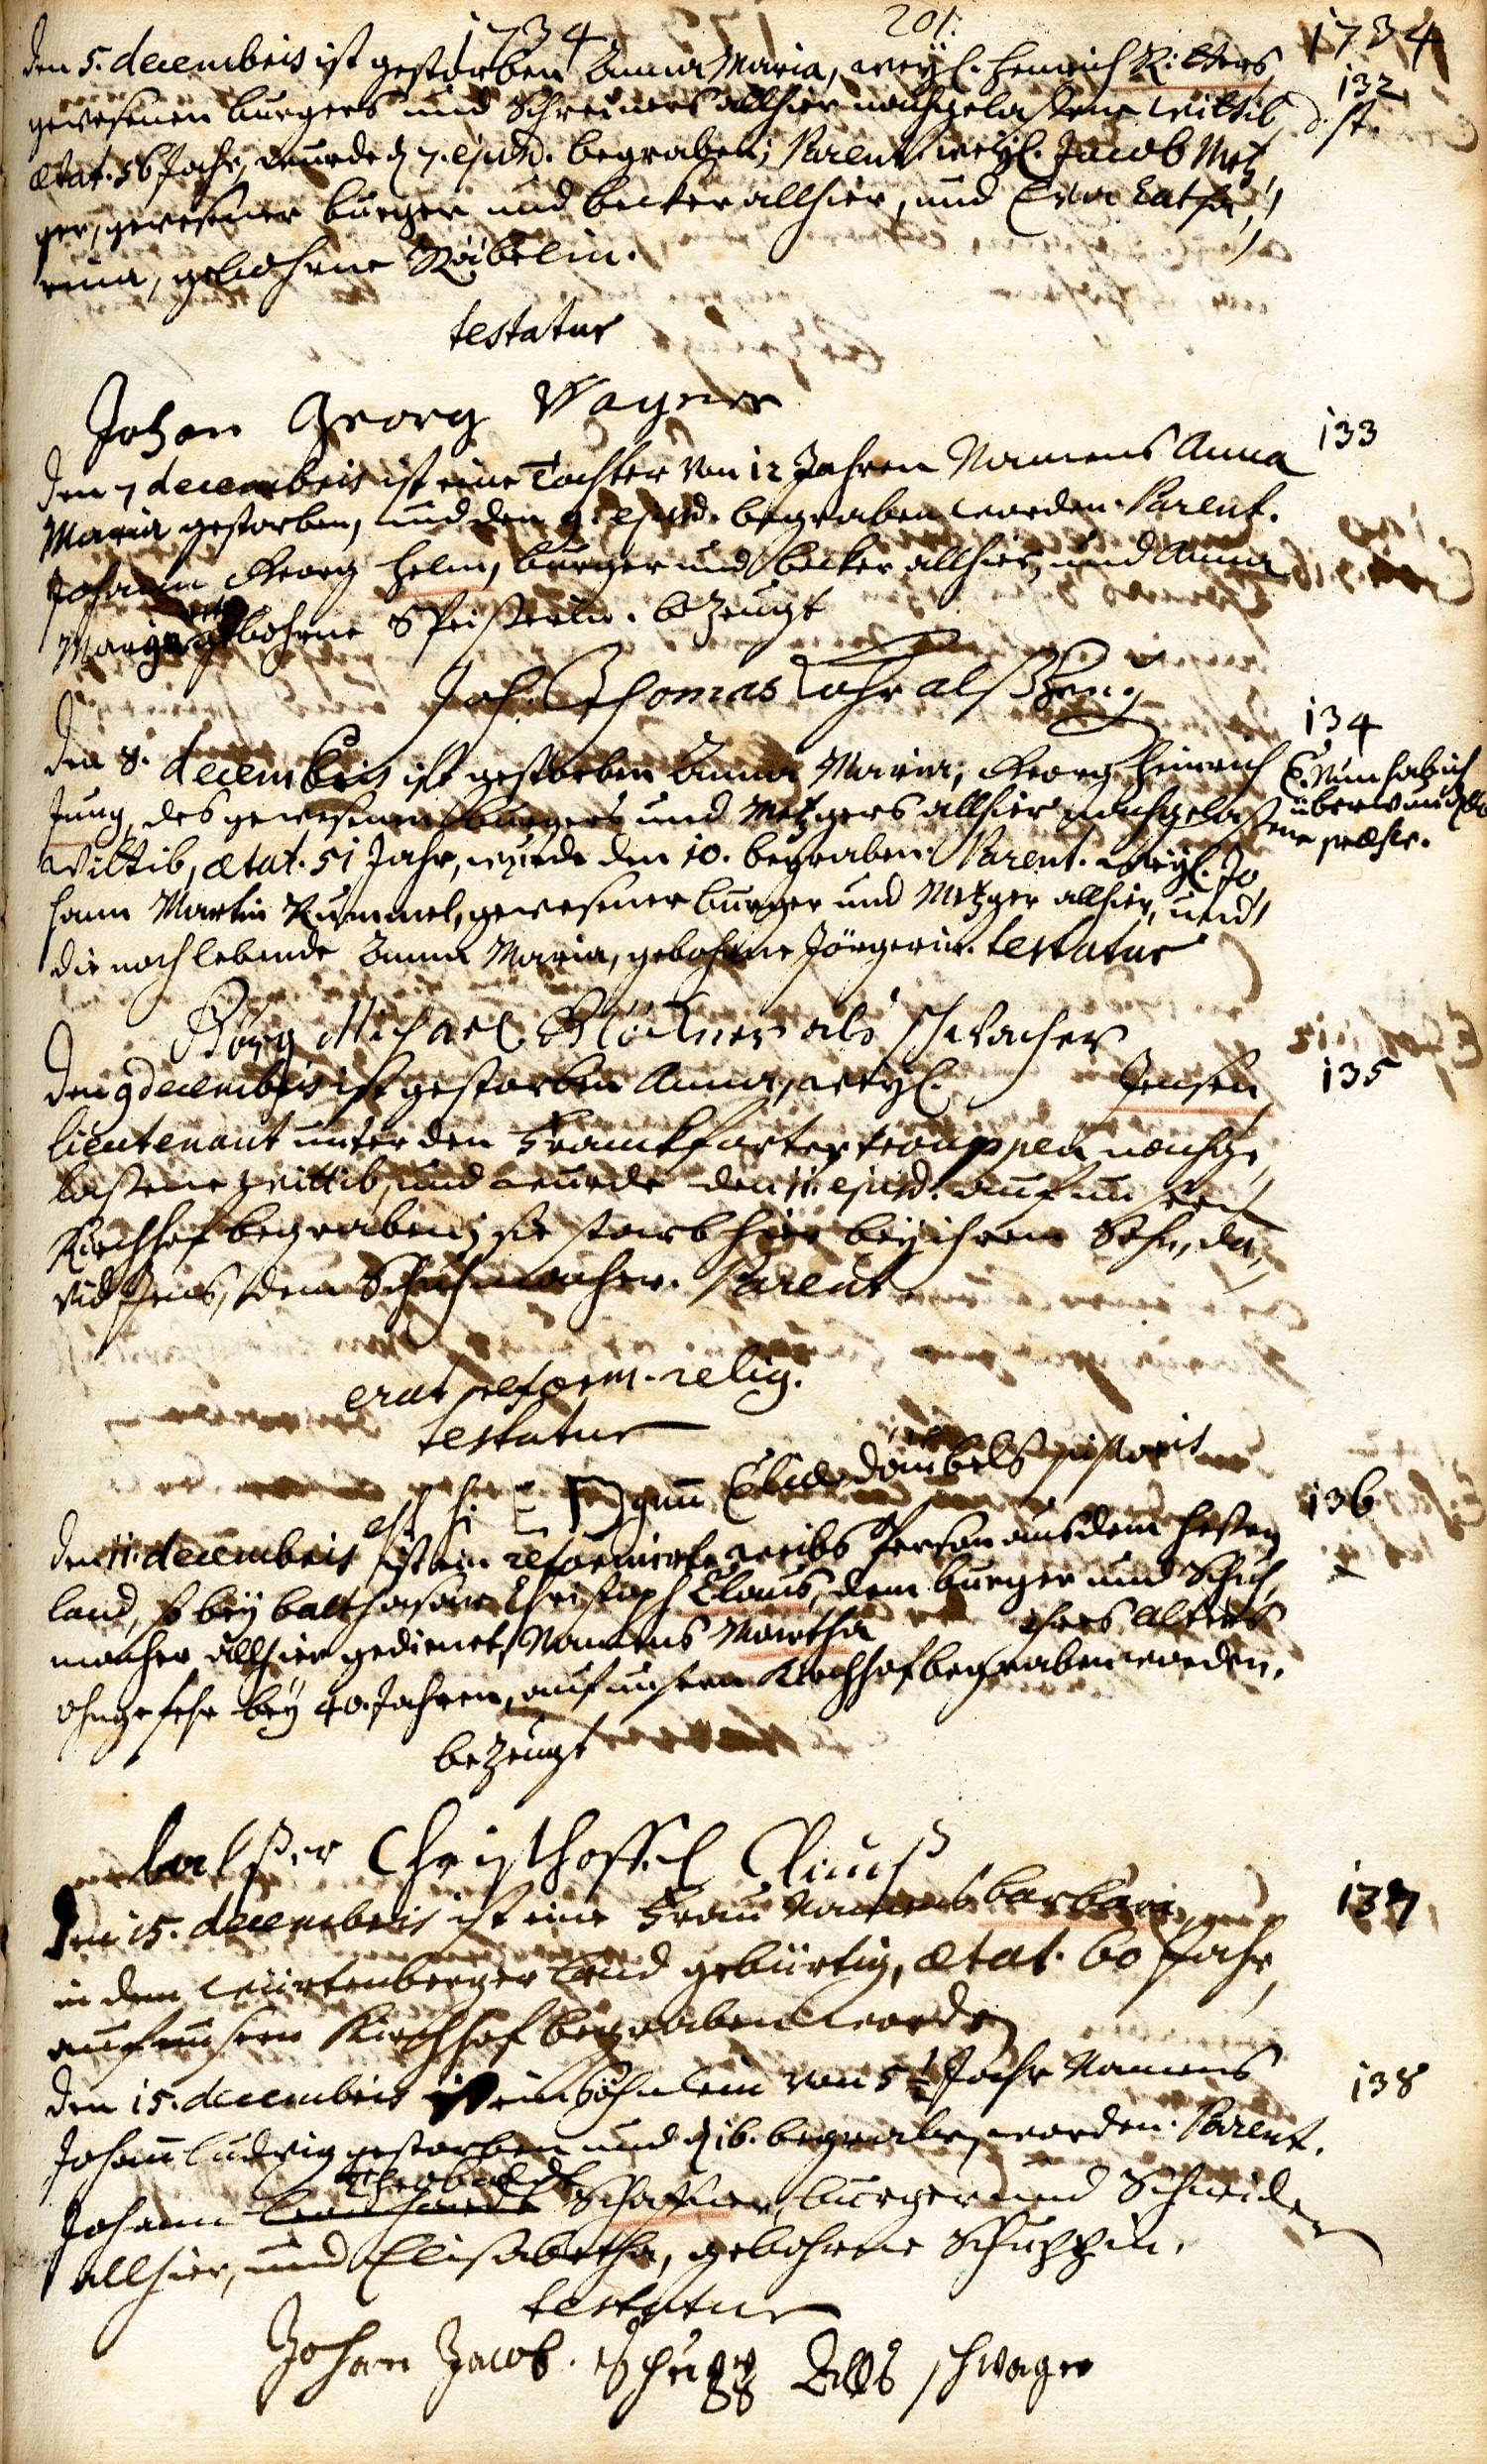 201.
1734
1734
den 5. decembris ist gestorben Anna Maria, weyl. Henrich Ritters
132
gewesenen burgers und Schreiners allhier nachgelaßene wittib
d. st.
ætat. 56 Jahr, wurde d 7. ejusd. begraben; Parent. weyl. Jacob Metz
ger, gewesener burger und becker allhier, und Eva Catha,,
rina, gebohrne Käbelin.
testatur
Johan Georg Wagner
133
den 7 decembris ist eine Tochter von 12 Jahren Namens Anna
Maria gestorben, und den 9. ejusd. begraben worden. Parent.
Johann Georg Helm, burger und becker allhier, und Anna
Margar gebohrne Speißerin. bezeugt
Joh. Thomas Lohr alß Zeug
134
den 8. decembris ist gestorben Anna Maria, Georg Heinrich
Jung, des gewesenen burgers und Metzgers allhier nachgelaßene
C. Nun hab ich
überwunden
wittib, ætat. 51 Jahr, wurde den 10. begraben. Parent. weyl. Jo
hann Martin Kummel, gewesener burger und Metzger allhier, und
die noch lebende Anna Maria, gebohrne Jörgerin. testatur
Görg Michael als schwacher
den 9 decembris ist gestorben Anna, weyl. Jensen
135
lieutenant unter den Franckfurter trouppen nachge,,
laßene wittib, und wurde den 11. ejusd. auf unsern
Kirchhof begraben; sie starb hier bey ihrem Sohn, Da,,
vid Jens, dem Schuhmacher. Parent.
erat reform. relig.
testatur
Däubels
136
den 11. decembris ist ein reformirte weibs Person aus dem Heßen
land, so bey balthasar Christoph Claus, dem burger und Schuh,
macher allhier gedienet, Namens Martha ihres alters
ohngefehr bey 40. Jahren, auf unsern Kirchhof begraben worden.
bezeugt
Christhoffel Clauß
137
den 15. decembris ist eine Frau Namens barbara
in dem würtenberger land gebürtig, ætat. 60 Jahr,
auf unsern Kirchhof begraben worden
138
den 15. decembris ist ein Söhnlein von 5½ Jahr Namens
Johann Ludwig gestorben und d 16. begraben worden. Parent.
Theobaldt
Johann Schaffner, burger und Schneider
allhier, und Elisabetha, gebohrne Schuppin.
testatur
Johan Jacob Schupp Alls schwager